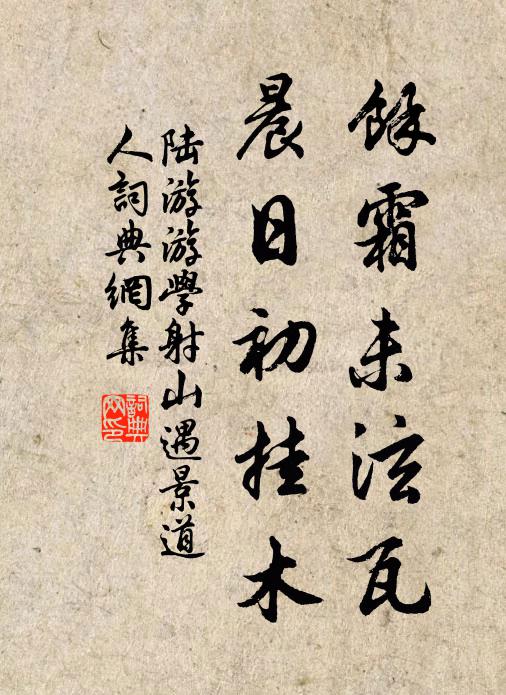 餘霜未泫瓦
晨日初挂木
陆游游學射山遇景道
人詞典網集
詞典網印